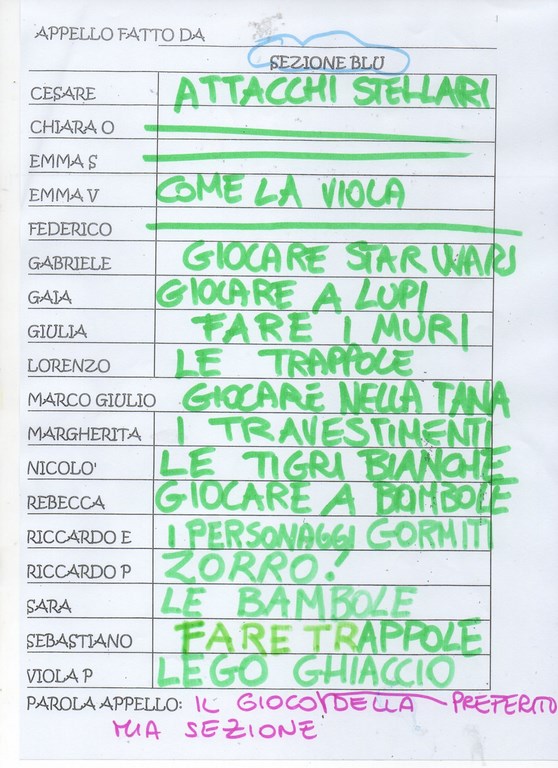 APPELLO FATTO DA
SEZIONE BLU
CESARE ATTACCHI STELLARI
CHIARA O
EMMA S
EMMA V COME LA VIOLA
FEDERICO
GABRIELE GIOCARE STAR WARS
GAIA GIOCARE A LUPI
GIULIA FARE I MURI
LORENZO LE TRAPPOLE
MARCO GIULIO GIOCARE NELLA TANA
MARGHERITA I TRAVESTIMENTI
NICOLO' LE TIGRI BIANCHE
REBECCA GIOCARE A BAMBOLE
RICCARDO E I PERSONAGGI GORMITI
RICCARDO P ZORRO!
SARA LE BAMBOLE
SEBASTIANO FARE TRAPPOLE
VIOLA P LEGO GHIACCIO
PAROLA APPELLO: IL GIOCO DELLA PREFERITO
MIA SEZIONE